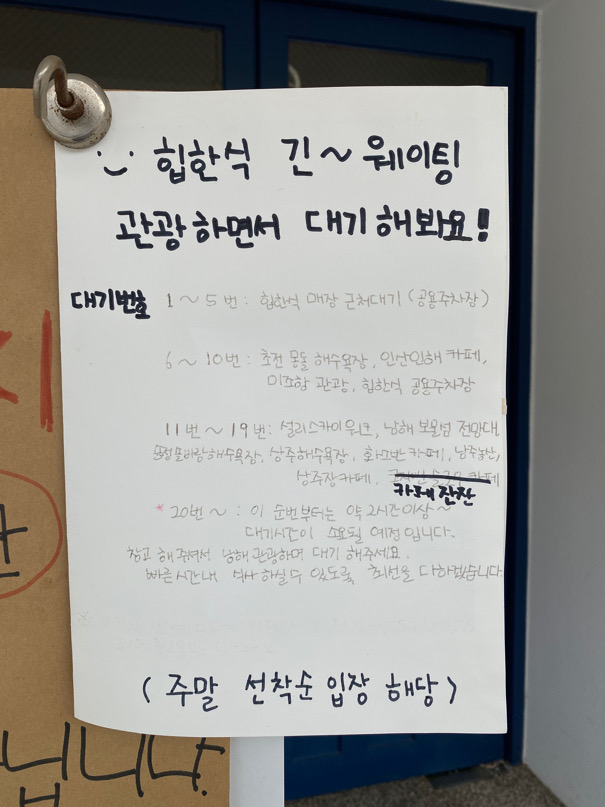 힙한식 긴~ 웨이팅
관광하면서 대기해봐요!
대기번호 1~5번: 힙한식 매장 근처대기 (공용주차장)
6~10번: 초전 몽돌 해수욕장, 인산인해 카페,
미조항 관광, 힙한식 공용주차장
11번~19번: 설리스카이워크, 남해 보물섬 전망대
해수욕장, 상주해수욕장, 화소반 카페, 남주농산,
상주장카페, 카페
카페 잔잔
*20번~: 이 순번부터는 약 2시간이상~
대기시간이 소요될 예정입니다.
참고 해주셔서 남해 관광하며 대기 해주세요.
빠른시간내 식사하실수 있도록 최선을 다하겠습니다
(주말 선착순 입장 해당)
니다